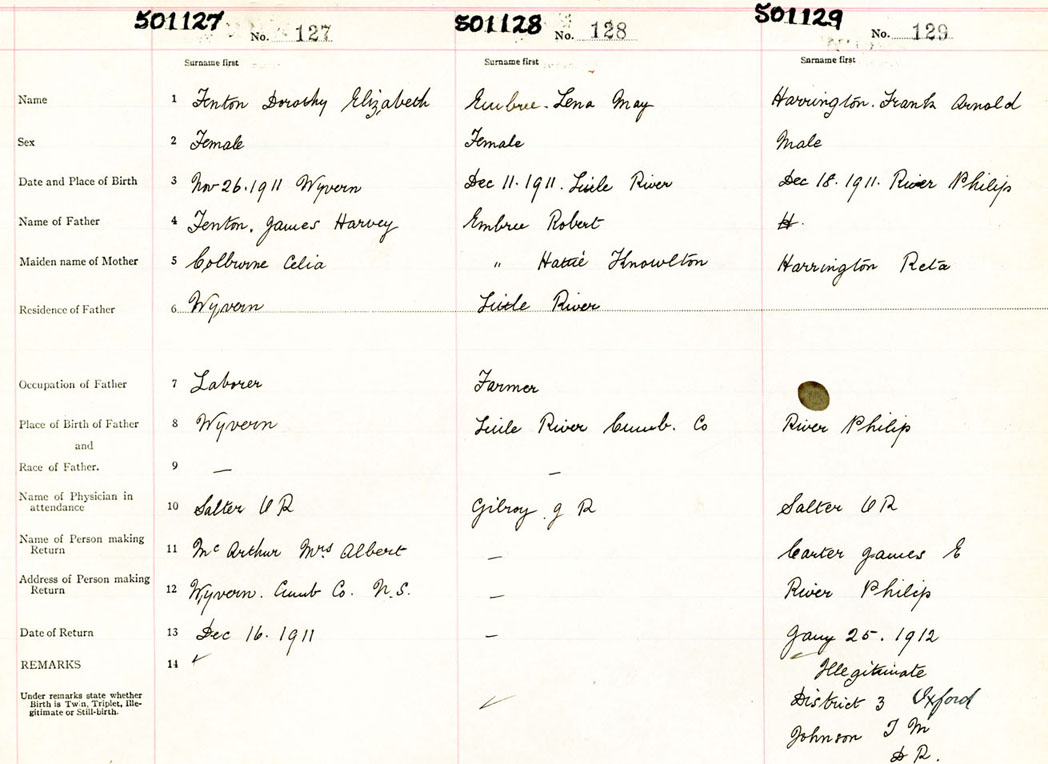 501127 No. 127 501128 No. 128 501129 No. 129
Surname first Surname first Surname first
Name 1 Fenton Dorothy Elizabeth Embree. Lena May Harrington. Frank Arnold
Sex 2 Female Female Male
Date and Place of Birth 3 Nov 26. 1911 Wyvern Dec 11. 1911. Little River Dec 18. 1911. River Philip
Name of Father 4 Fenton, James Harvey Embree Robert H.
Maiden name of Mother 5 Colburne Celia " Hattie Knowlton Harrington Reta
Residence of Father 6 Wyvern Little River
Occupation of Father 7 Laborer Farmer
Place of Birth of Father 8 Wyvern Little River Cumb. Co River Philip
and
Race of Father. 9 — —
Name of Physician in
attendance 10 Salter C R Gilroy J R Salter C R
Name of Person making
Return 11 Mc Arthur Mrs Albert — Carter James E
Address of Person making
Return 12 Wyvern. Cumb Co. N.S. — River Philip
Date of Return 13 Dec 16. 1911 — Jany 25. 1912
REMARKS 14 ✓ Illegitimate
Under remarks state whether
Birth is Twin, Triplet, Ille-
gitimate or Still-birth. ✓ District 3 Oxford
Johnson T M
D R.